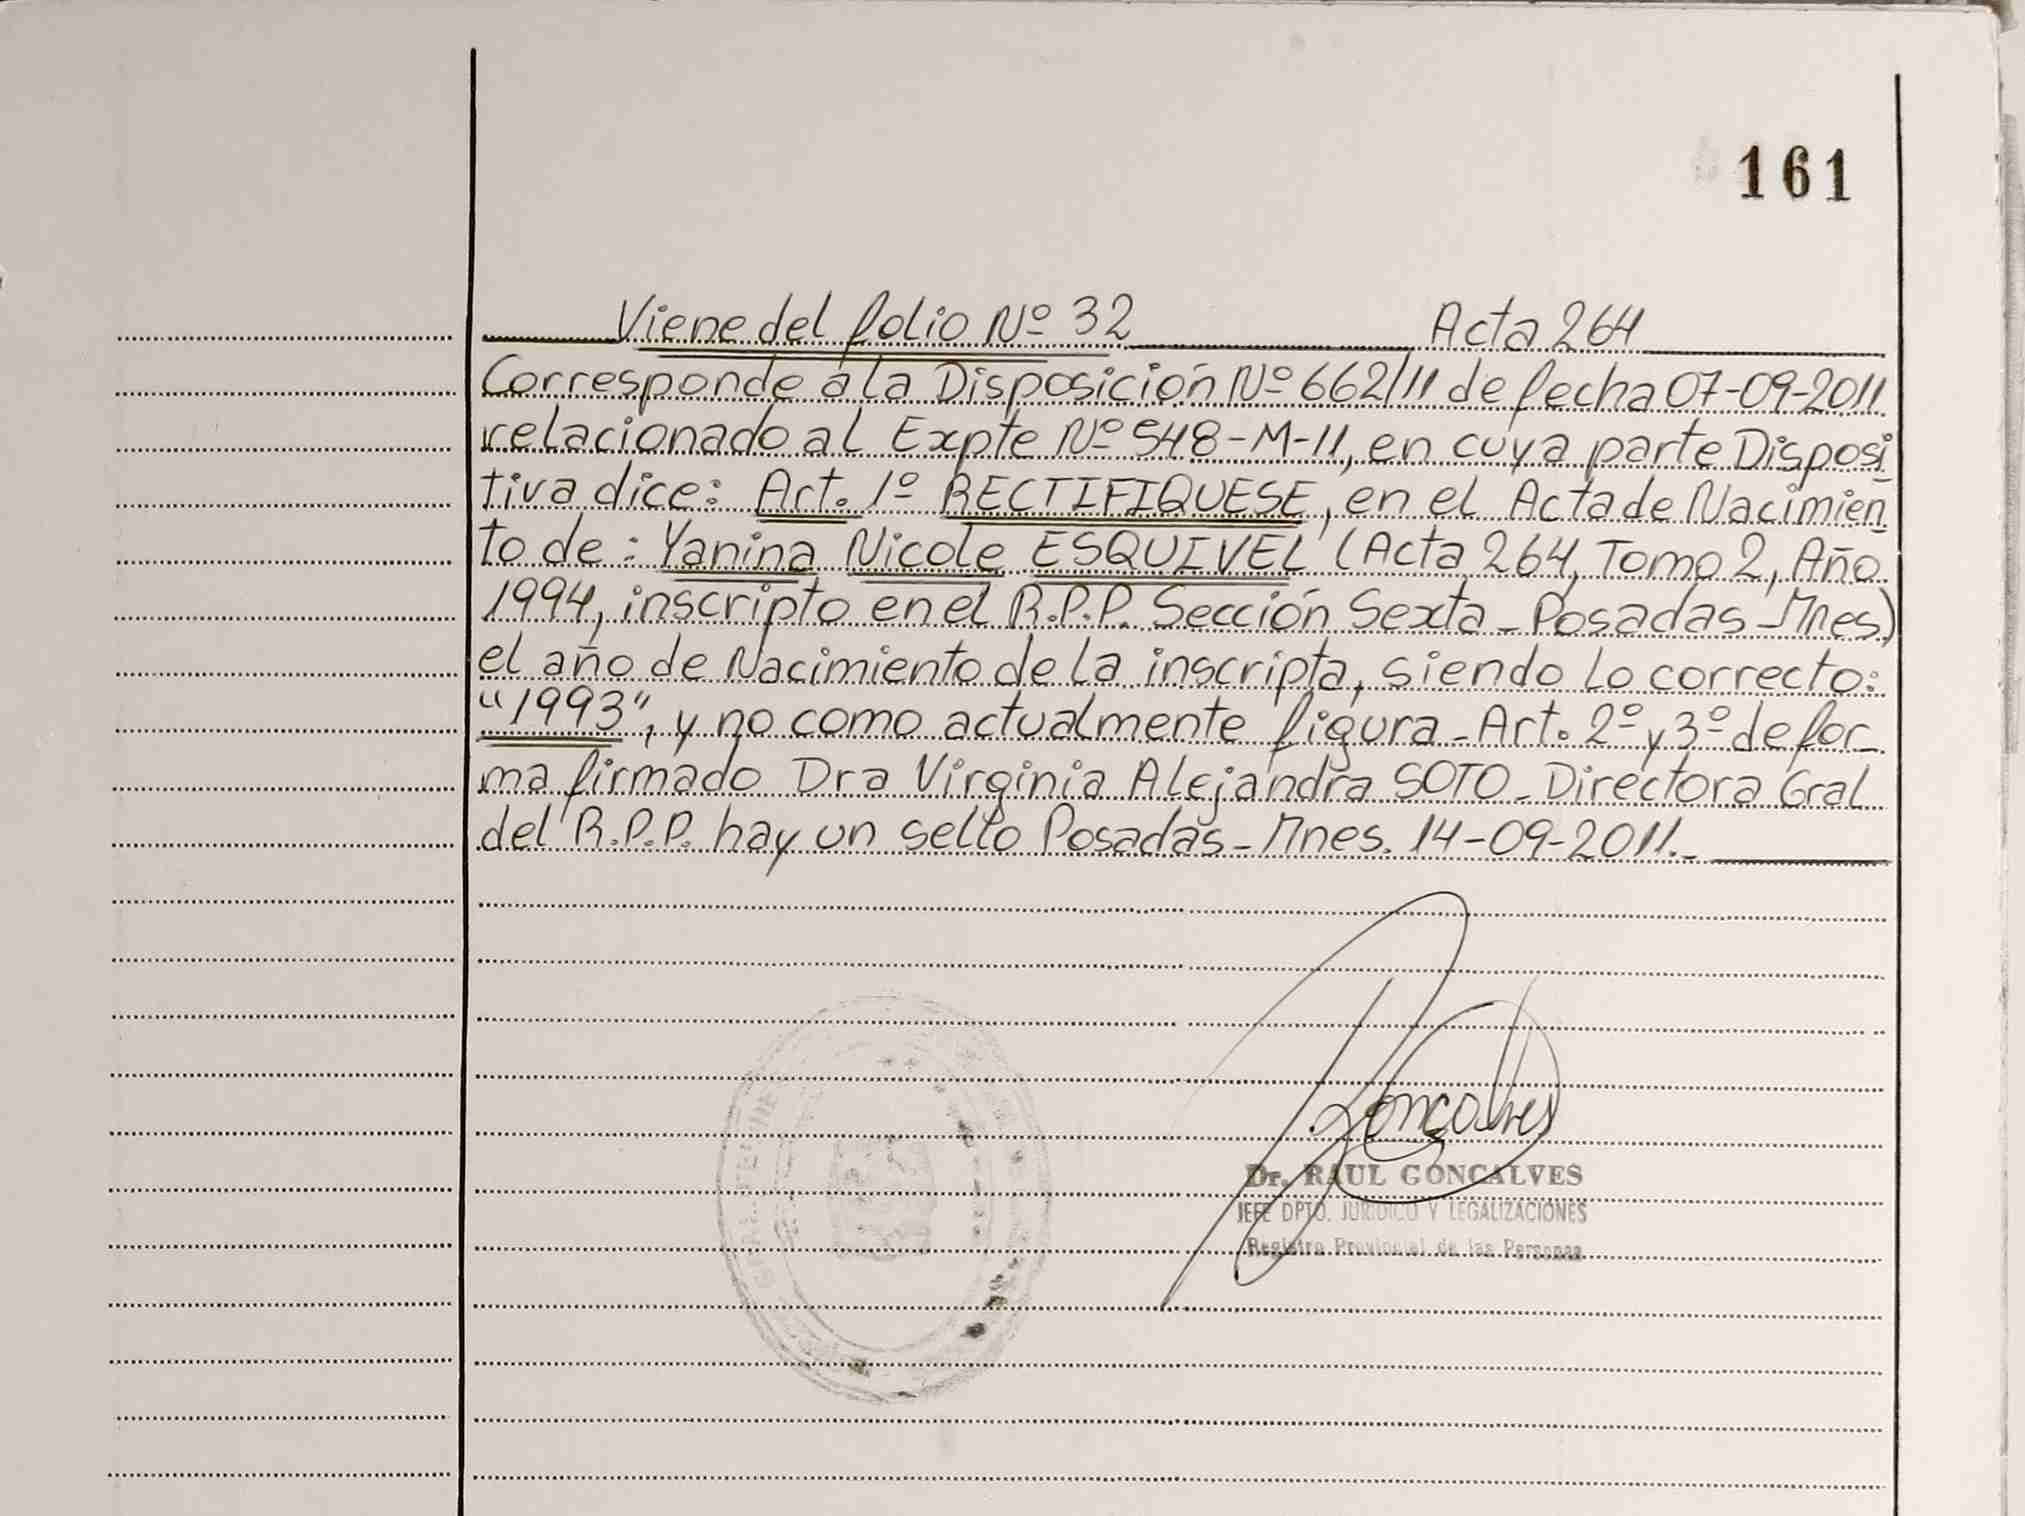 161
Viene del folio Nº 32 Acta 264
Corresponde a la Disposición Nº 662/11 de fecha 07-09-2011
relacionado al Expte Nº 548-M-11, en cuya parte Disposi
tiva dice: Art. 1º RECTIFIQUESE, en el Acta de Nacimien
to de: Yanina Nicole ESQUIVEL (Acta 264, Tomo 2, Año
1994, inscripto en el R.P.P. Sección Sexta - Posadas - Mnes)
el año de Nacimiento de la inscripta, siendo lo correcto:
"1993", y no como actualmente figura - Art. 2º y 3º de for-
ma firmado Dra Virginia Alejandra SOTO - Directora Gral
del R.P.P. hay un sello Posadas - Mnes. 14-09-2011.-
Goncalves
Dr. RAUL GONCALVES
JEFE DPTO. JURIDICO Y LEGALIZACIONES
Registro Provincial de las Personas